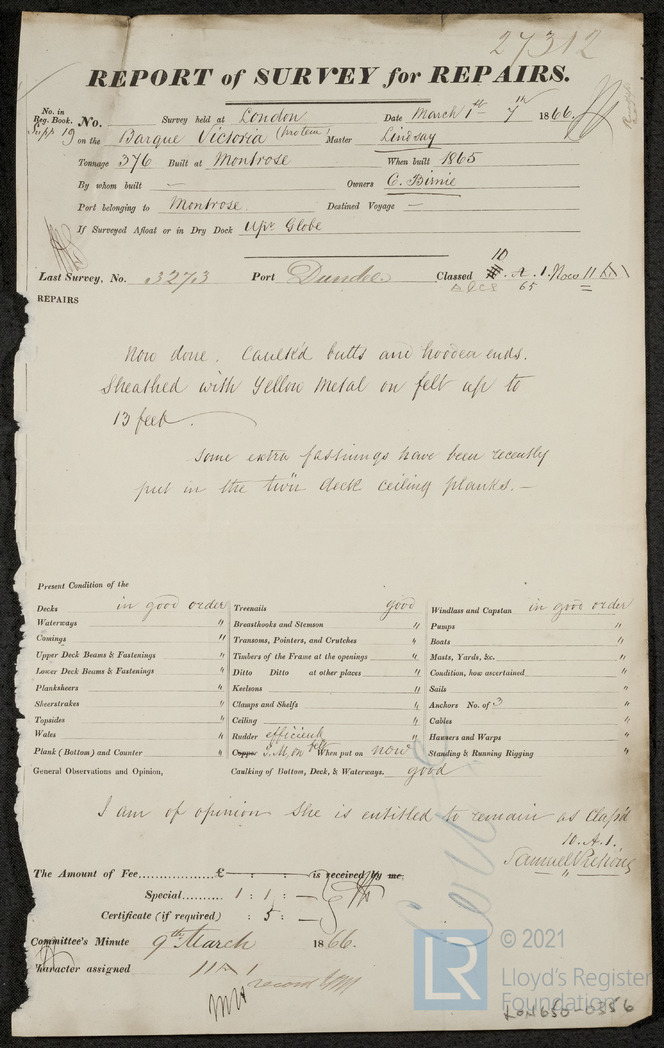 27312
REPORT of SURVEY for REPAIRS.
No. in Reg. Book. No. Survey held at London Date March 1st 7th 1866.
Supp 19 on the Barque Victoria Master Lindsay
Tonnage 376 Built at Montrose When built 1865
By whom built — Owners C. Birnie
Port belonging to Montrose Destined Voyage —
If Surveyed Afloat or in Dry Dock Upr Globe
Last Survey, No. 3273 Port Dundee Classed 10 A. 1. 65
REPAIRS
Now done. Caulk'd butts and hooden ends.
Sheathed with Yellow Metal on felt up to
13 feet.
Some extra fastnings have been recently
put in the twn deck ceiling planks. —
Present Condition of the
Decks in good order Treenails good Windlass and Capstan in good order
Waterways " Breasthooks and Stemson " Pumps "
Comings " Transoms, Pointers, and Crutches " Boats "
Upper Deck Beams & Fastenings " Timbers of the Frame at the openings " Masts, Yards, &c. "
Lower Deck Beams & Fastenings " Ditto Ditto at other places " Condition, how ascertained "
Planksheers " Keelsons " Sails "
Sheerstrakes " Clamps and Shelfs " Anchors No. of 3 "
Topsides " Ceiling " Cables "
Wales " Rudder efficient Hawsers and Warps "
Plank (Bottom) and Counter " Copper Y.M. on felt When put on now Standing & Running Rigging "
General Observations and Opinion, Caulking of Bottom, Deck, & Waterways. good
I am of opinion She is entitled to remain as Class'd
10. A. 1.
Samuel
The Amount of Fee £ — : — : — is received by me,
Special 1 : 1 : —
Certificate (if required) : 5 : —
Committee's Minute 9th March 1866.
Character assigned
record YM
© 2021
LR
Lloyd's Register
Foundation
LON650-0356